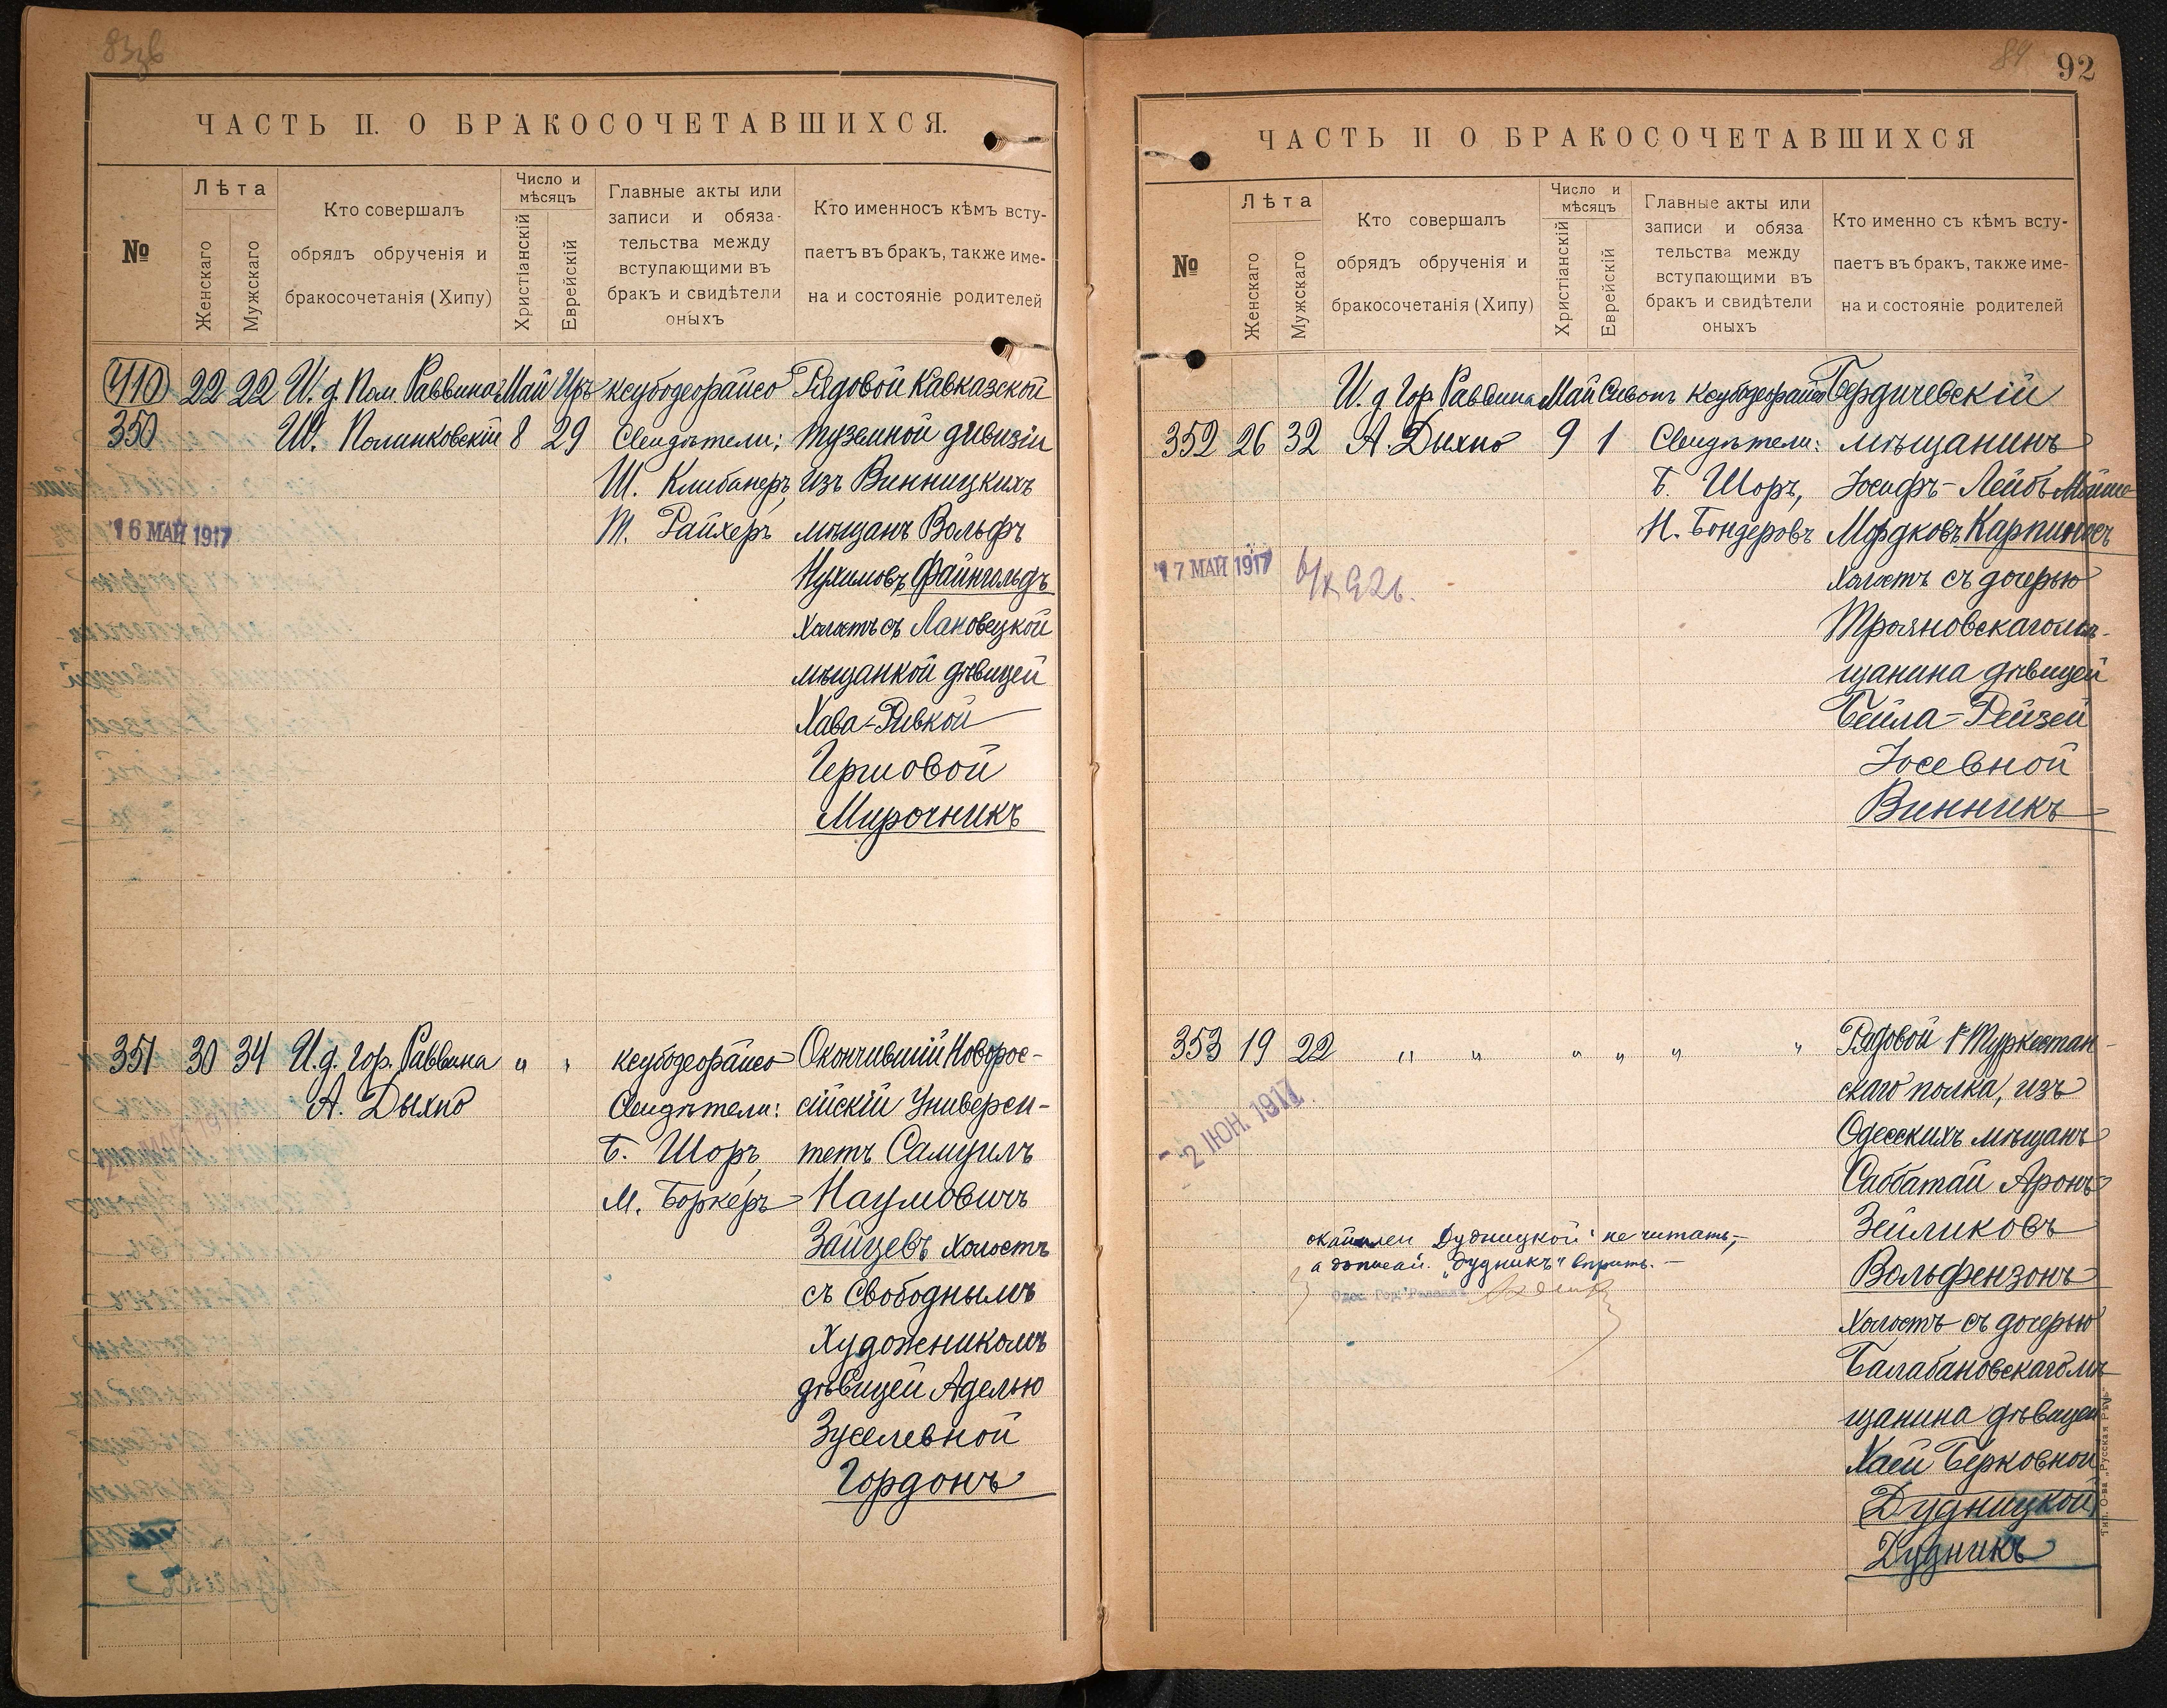 83об
ЧАСТЬ II. О БРАКОСОЧЕТАВШИХСЯ.
№
Лѣта
Женскаго
Мужскаго
Кто совершалъ
обрядъ обрученія и
бракосочетанія (Хипу)
Число и
мѣсяцъ
Христіанскій
Еврейскій
Главные акты или
записи и обяза-
тельства между
вступающими въ
бракъ и свидѣтели
оныхъ
Кто именносъ кѣмъ всту-
паетъ въ бракъ, также име-
на и состояніе родителей
410 22 22 И. д. Пом. Раввина Май Иръ ксубодеорайсо Рядовой Кавказской
350 Ш. Полинковскій 8 29 Свидѣтели: туземной дивизіи
Ш. Клибанеръ, изъ Винницкихъ
16 МАЙ 1917 Т. Райхеръ мѣщанъ Вольфъ
Нухимовъ Файнгольдъ
Холостъ съ Лановецкой
мѣщанкой дѣвицей
Хава-Ривкой
Гершовой
Мирочникъ
351 30 34 И. д. Гор. Раввина " " ксубодеорайсо Окончившій Новорос-
А. Дыхно Свидѣтели: сійскій Универси-
Б. Шоръ, тетъ Самуилъ
М. Боркеръ Наумовичъ
Зайцевъ холостъ
съ Свободнымъ
Художникомъ
дѣвицей Аделью
Зуселевной
Гордонъ
84
92
ЧАСТЬ II О БРАКОСОЧЕТАВШИХСЯ
№
Лѣта
Женскаго
Мужскаго
Кто совершалъ
обрядъ обрученія и
бракосочетанія (Хипу)
Число и
мѣсяцъ
Христіанскій
Еврейскій
Главные акты или
записи и обяза
тельства между
вступающими въ
бракъ и свидѣтели
оныхъ
Кто именно съ кѣмъ всту-
паетъ въ бракъ, также име-
на и состояніе родителей
И. д. Гор. Раввина Май Сивонъ ксубодеорайсо Бердичевскій
352 26 32 А. Дыхно 9 1 Свидѣтели: мѣщанинъ
Б. Шоръ, Іосифъ-Лейбъ
Н. Бондеровъ Мордковъ Карпиносъ
17 МАЙ 1917
холостъ съ дочерью
Трояновскаго мѣ-
щанина дѣвицей
Бейла-Рейзей
Іосевной
Винникъ
353 19 22 " " " " " " Рядовой 1 Туркестан-
скаго полка, изъ
2 ІЮН. 1917 Одесскихъ мѣщанъ
Саббатай Аронъ
Зейликовъ
"Дудницкой" не читать,-
а "Дудникъ" вѣрить.-
Одес. Гор. Раввинъ
Вольфензонъ
холостъ съ дочерью
Балабановскаго мѣ-
щанина дѣвицей
Хаей Берковной
(Дудницкой)
Дудникъ
Тип. О-ва „Русская Рѣчь"